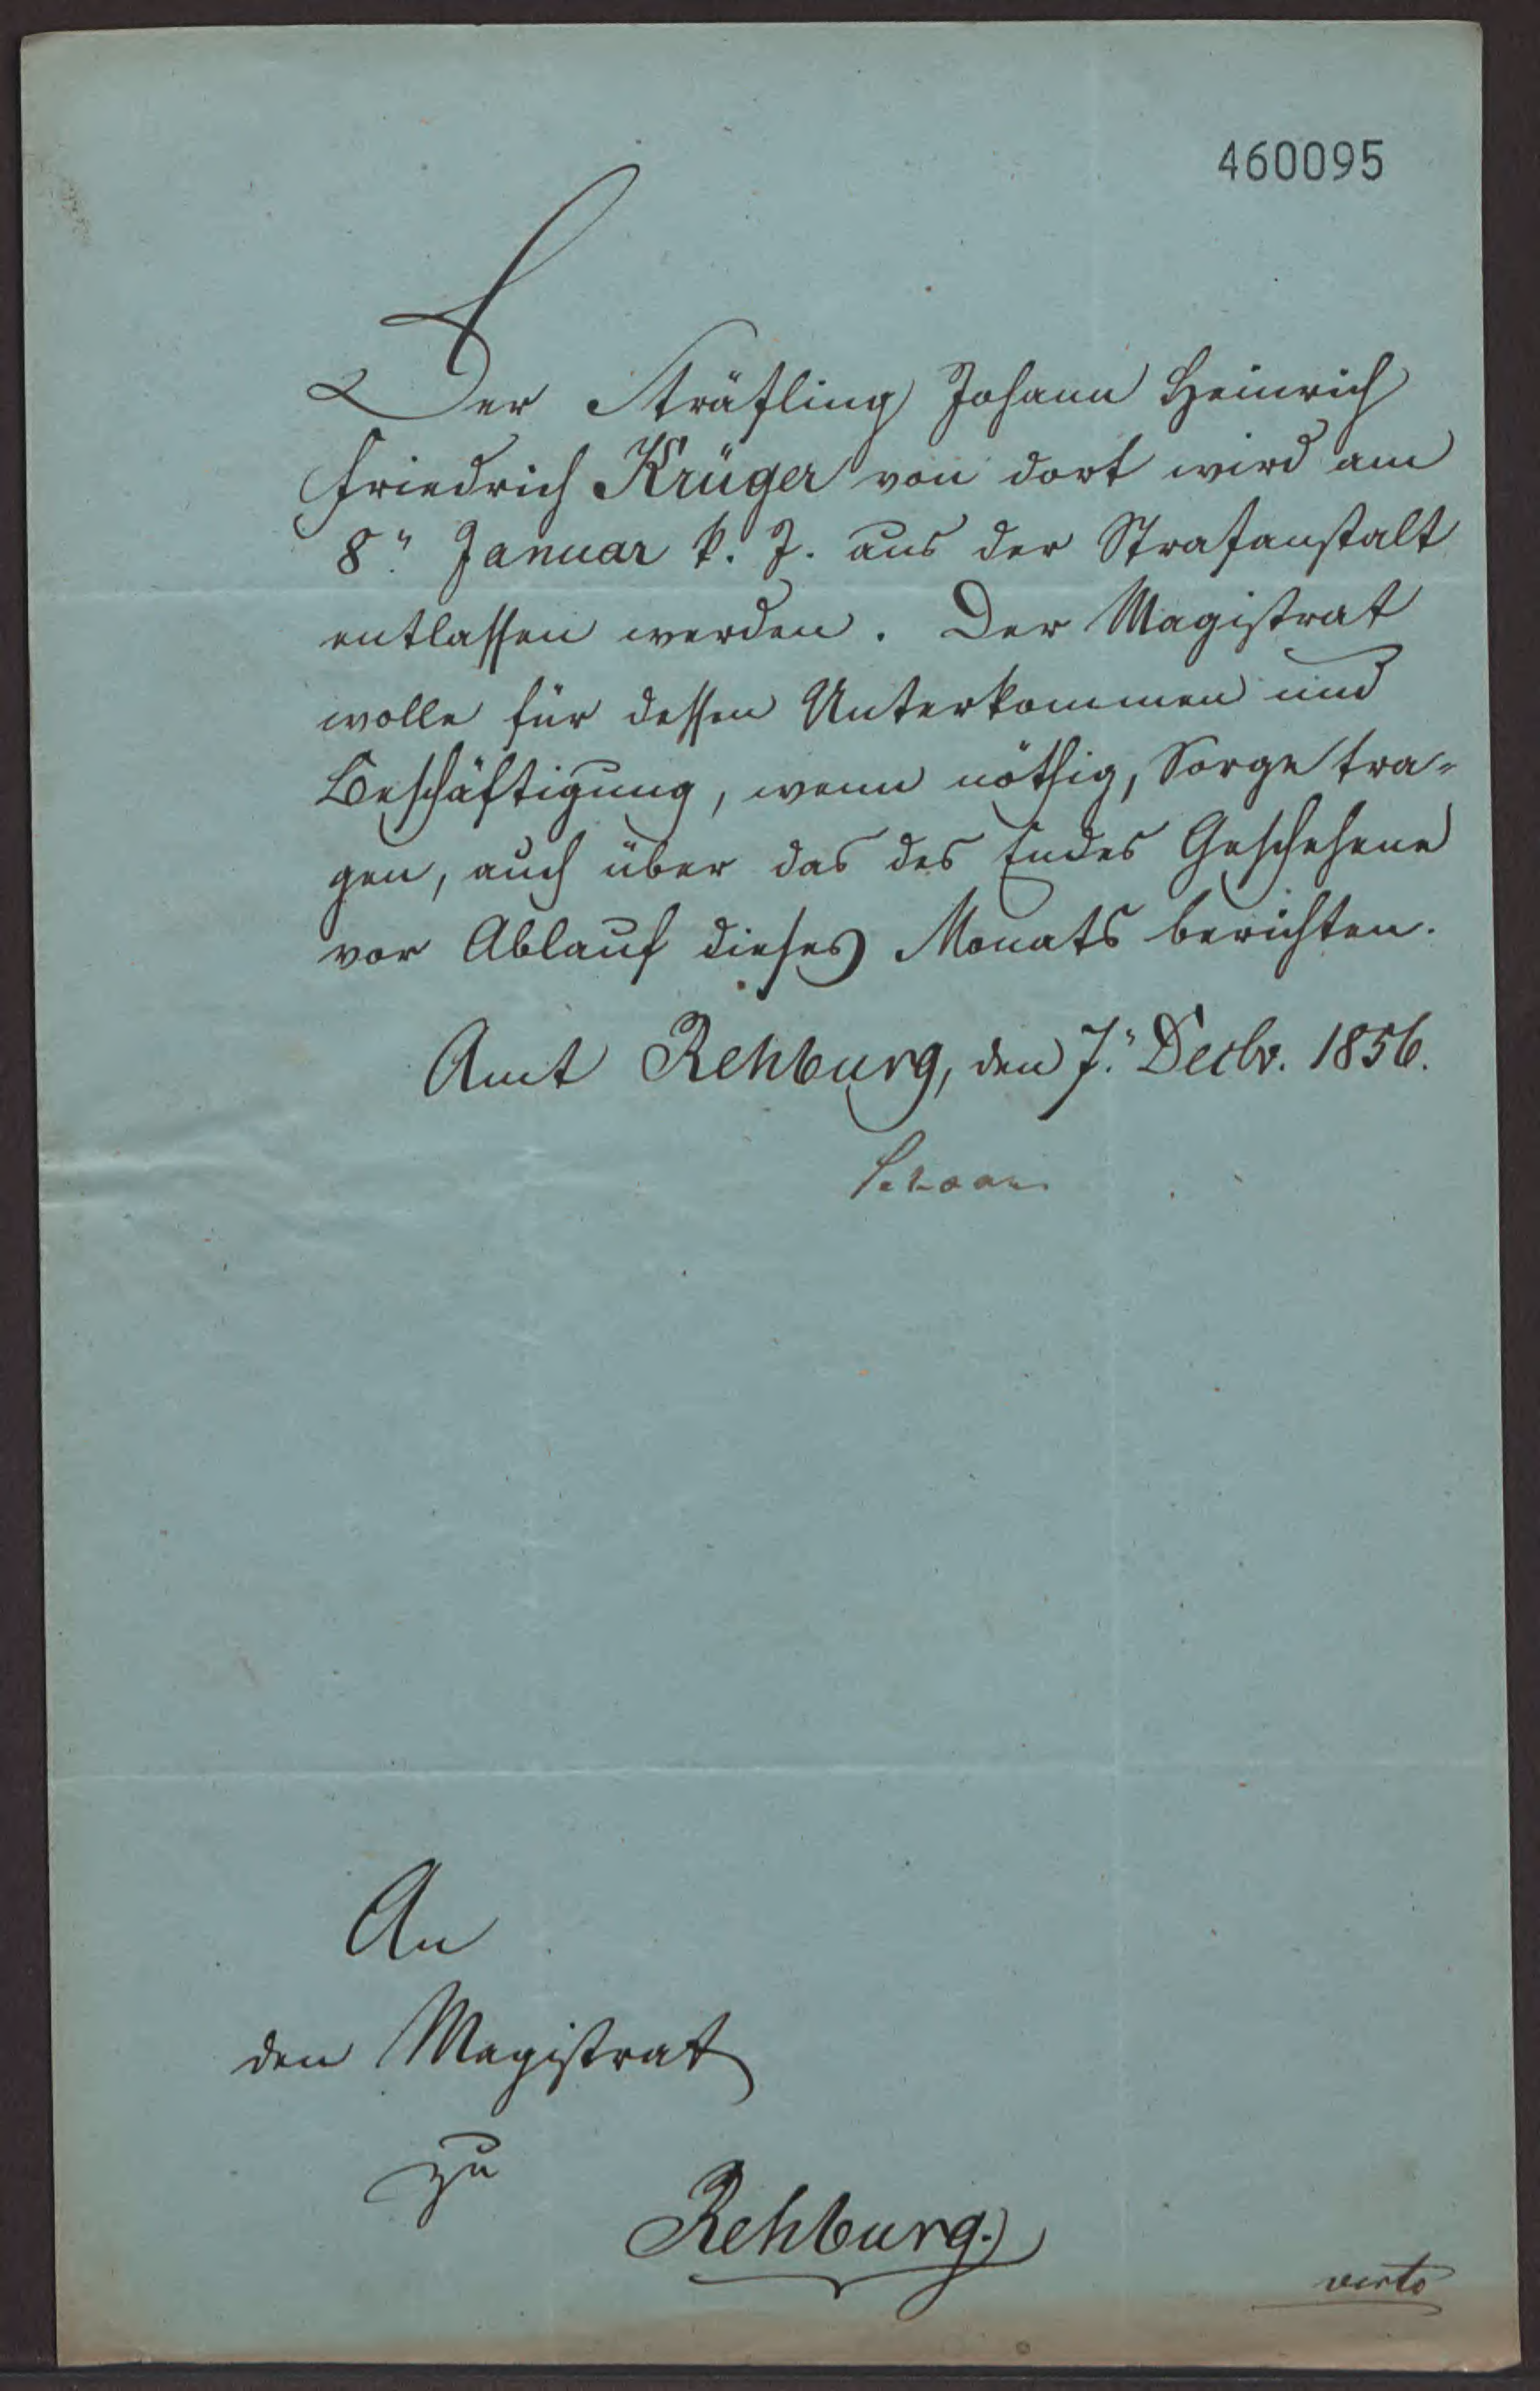 460095
Der Sträfling Johann Heinrich
Friedrich Krüger von dort wird am
8." Januar k. J. aus der Strafanstalt
entlassen werden. Der Magistrat
wolle für dessen Unterkommen und
Beschäftigung, wenn nöthig, Sorge tra-
gen, auch über das des Endes Geschehene
vor Ablauf dieses Monats berichten.
Amt Rehburg, den 7." Decbr. 1856.
An
den Magistrat
zu
Rehburg.
verte